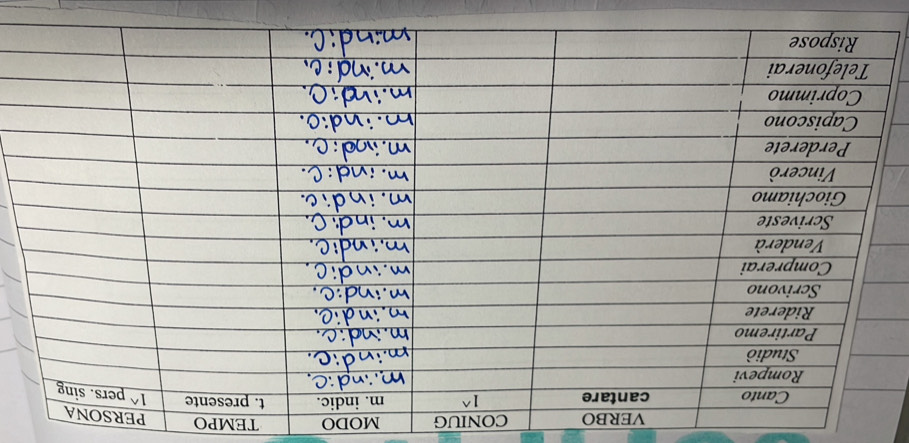 VERBO CONIUG MODO TEMPO PERSONA
Canto cantare 1^ m. indic. t. presente 1^ pers. sing
Rompevi m. indic.
Studiò m. indic.
Partiremo m. indic.
Riderete m. indic.
Scrivono m. indic.
Comprerai m. indic.
Venderà m. indic.
Scriveste m. indic.
Giochiamo m. indic.
Vincerò m. indic.
Perderete m. indic.
Capiscono m. indic.
Coprimmo m. indic.
Telefonerai m. indic.
Rispose m. indic.